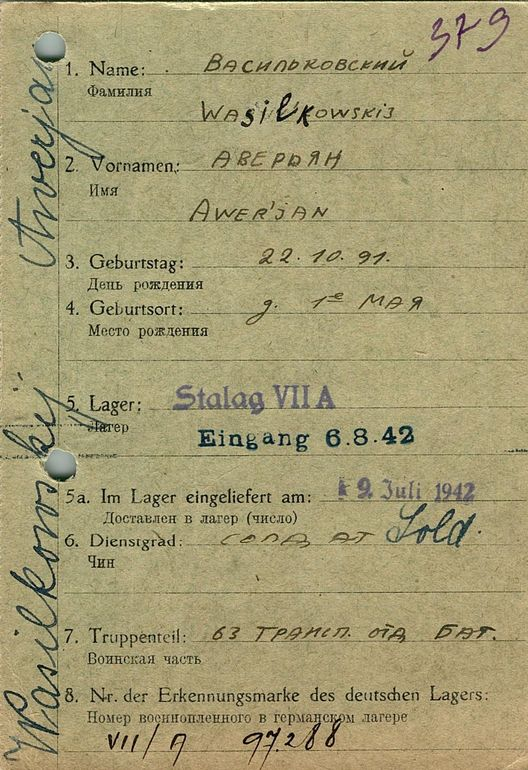 379
1. Name: Васильковский
Фамилия
Wasilkowskij
2. Vornamen: Аверьян
Имя
Awer'jan
3. Geburtstag: 22.10.91.
День рождения
4. Geburtsort: д. 1е Мая
Место рождения
5. Lager: Stalag VII A
Лагерь
Eingang 6.8.42
5a. Im Lager eingeliefert am: 9. Juli 1942
Доставлен в лагерь (число)
6. Dienstgrad: солдат Sold.
Чин
7. Truppenteil: 63 трансп. отд бат.
Воинская часть
8. Nr. der Erkennungsmarke des deutschen Lagers:
Номер военнопленного в германском лагере
VII/A 97.288
Wasilkowskij Awerja